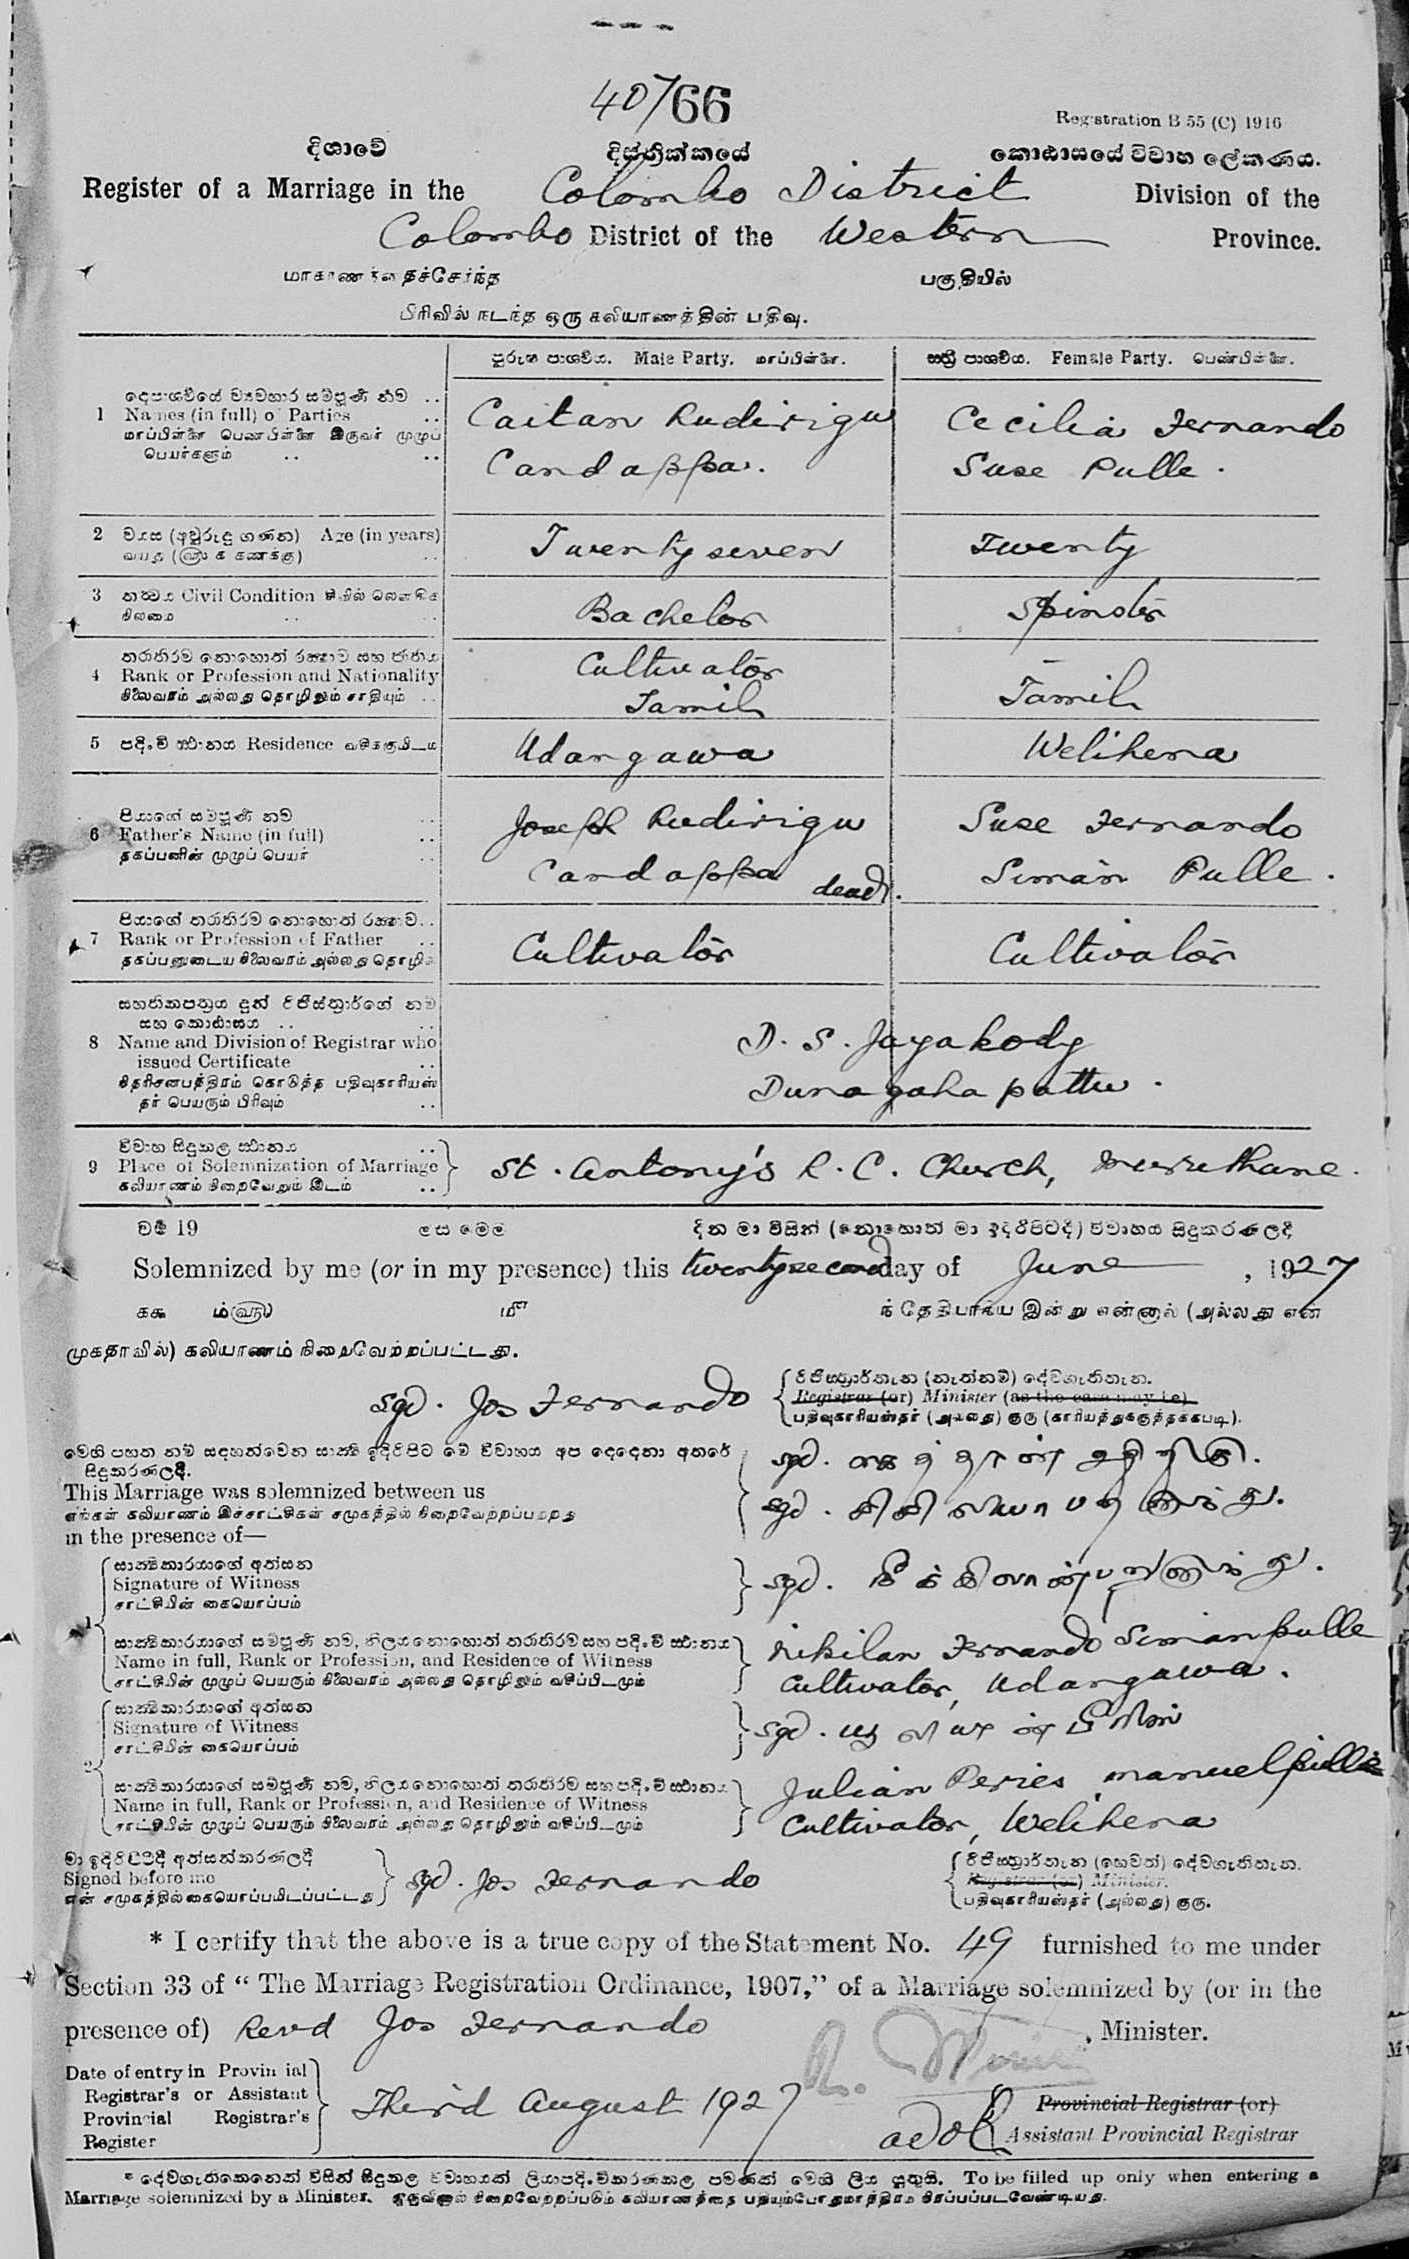 40/66
Registration B 55 (C) 1916
දිශාවේ දිස්ත්‍රික්කයේ කොඨාසයේ විවාහ ලේකණය.
Register of a Marriage in the Colombo District Division of the
Colombo District of the Western Province.
மாகாணத்தைச்சேர்ந்த பகுதியில்
பிரிவில் நடந்த ஒரு கலியாணத்தின் பதிவு.
පුරුෂ පාශ්වීය. Male Party. மாப்பிள்ளை. ස්ත්‍රී පාශ්වීය. Female Party. பெண்பிள்ளை.
1 Names (in full) of Parties
மாப்பிள்ளை பெண்பிள்ளை இருவர் முழுப்
பெயர்களும்
Caitan Rudirigu
Candappa.
Cecilia Fernando
Suse Pulle.
2 වයස (අවුරුදු ගණන) Age (in years)
Twenty seven Twenty
3 Civil Condition
Bachelor Spinster
4 Rank or Profession and Nationality
நிலைவரம் அல்லது தொழிலும் சாதியும்
Cultivator
Tamil
Tamil
5 පදිංචි ස්ථානය Residence வசிக்குமிடம்
Udangawa Welihena
6 පියාගේ සම්පූර්ණ නම
Father's Name (in full)
தகப்பனின் முழுப் பெயர்
Joseph Rudirigu
Candappa dead.
Suse Fernando
Siman Pulle.
7 පියාගේ තරාතිරම නොහොත් රක්ෂාව
Rank or Profession of Father
தகப்பனுடைய நிலைவரம் அல்லது தொழில்
Cultivator Cultivator
8 Name and Division of Registrar who
issued Certificate
தர் பெயரும் பிரிவும்
D. S. Jayakody
Dunagaha pattu.
9 විවාහ සිදුකල ස්ථානය
Place of Solemnization of Marriage
கலியாணம் நிறைவேறும் இடம்
St. Antony's R. C. Church, Murruthane.
වර්ෂ 19 ලස මෙම දින මා විසින් (නොහොත් මා ඉදිරිපිටදී) විවාහය සිදුකරණලදී
Solemnized by me (or in my presence) this twentysecond day of June, 1927
ந் தேதியாகிய இன்று என்னால் (அல்லது என்
முகதாவில்) கலியாணம் நிறைவேற்றப்பட்டது.
sgd. Jos Fernando
Registrar (or) Minister (as the case may be)
பதிவுகாரியஸ்தர் (அல்லது) குரு (காரியத்துக்குத்தக்கபடி).
මෙහි පහත නම් සඳහන්වෙන සාක්ෂි ඉදිරිපිට මේ විවාහය අප දෙදෙනා අතරේ
සිදුකරණලදී.
This Marriage was solemnized between us
எங்கள் கலியாணம் இச்சாட்சிகள் சமுகத்தில் நிறைவேற்றப்பட்டது
in the presence of—
sgd.
sgd.
1 සාක්ෂිකාරයාගේ අත්සන
Signature of Witness
சாட்சியின் கையொப்பம்
sgd.
Name in full, Rank or Profession, and Residence of Witness
சாட்சியின் முழுப் பெயரும் நிலைவரம் அல்லது தொழிலும் வசிப்பிடமும்
Nikilan Fernando Simanpulle
Cultivator, Udangawa.
2 සාක්ෂිකාරයාගේ අත්සන
Signature of Witness
சாட்சியின் கையொப்பம்
sgd.
Name in full, Rank or Profession, and Residence of Witness
சாட்சியின் முழுப் பெயரும் நிலைவரம் அல்லது தொழிலும் வசிப்பிடமும்
Julian Peries Manuelpulle
Cultivator, Welihena
මා ඉදිරිපිටදී අත්සන්කරණලදී
Signed before me
என் சமுகத்தில் கையொப்பமிடப்பட்டது
sgd. Jos Fernando
Registrar (or) Minister.
பதிவுகாரியஸ்தர் (அல்லது) குரு.
* I certify that the above is a true copy of the Statement No. 49 furnished to me under
Section 33 of “The Marriage Registration Ordinance, 1907,” of a Marriage solemnized by (or in the
presence of) Revd Jos Fernando, Minister.
Date of entry in Provincial
Registrar's or Assistant
Provincial Registrar's
Register
Third August 1927
Provincial Registrar (or)
Assistant Provincial Registrar
To be filled up only when entering a
Marriage solemnized by a Minister. குருவினால் நிறைவேற்றப்படும் கலியாணத்தை பதியும்போதுமாத்திரம் நிரப்பப்படவேண்டியது.